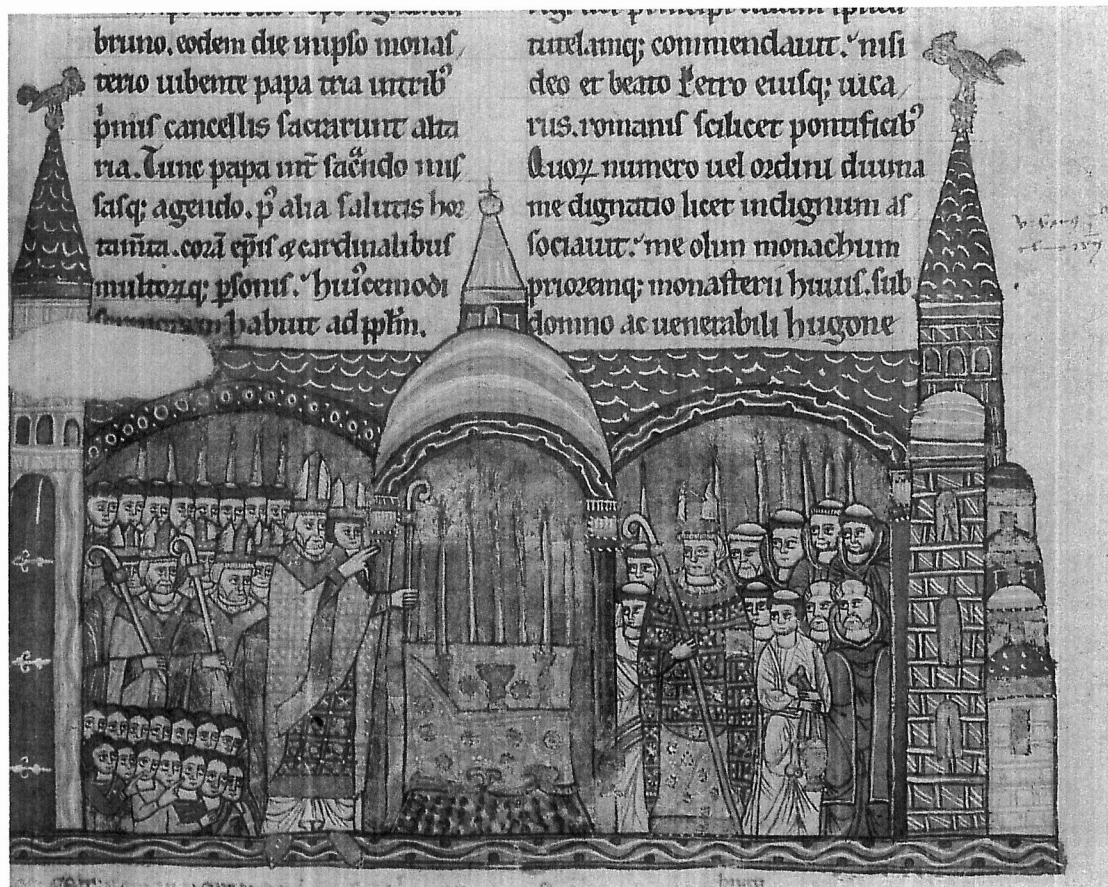 bruno. eodem die in ipso monas,
terio iubente papa tria in trib᾿
p̃mis cancellis sacrarunt alta
ria. Tunc papa int̃ sac̃ndo mis
sasq; agendo. p᾿ alia salutis hor
tam̃ta. corã ep̃is &cardinalibus
multorꝝq; p̱sonis. huĩcemodi
habuit ad pp̃lm.
tutelamq; commendauit. nisi
deo et beato Petro eiusq; uica,
rus. romanis scilicet pontificib᾿
Quorꝝ numero uel ordini diuina
me dignatio licet indignum as
sociauit. me olim monachum
prioremq; monasterii huius. sub
domno ac uenerabili hugone